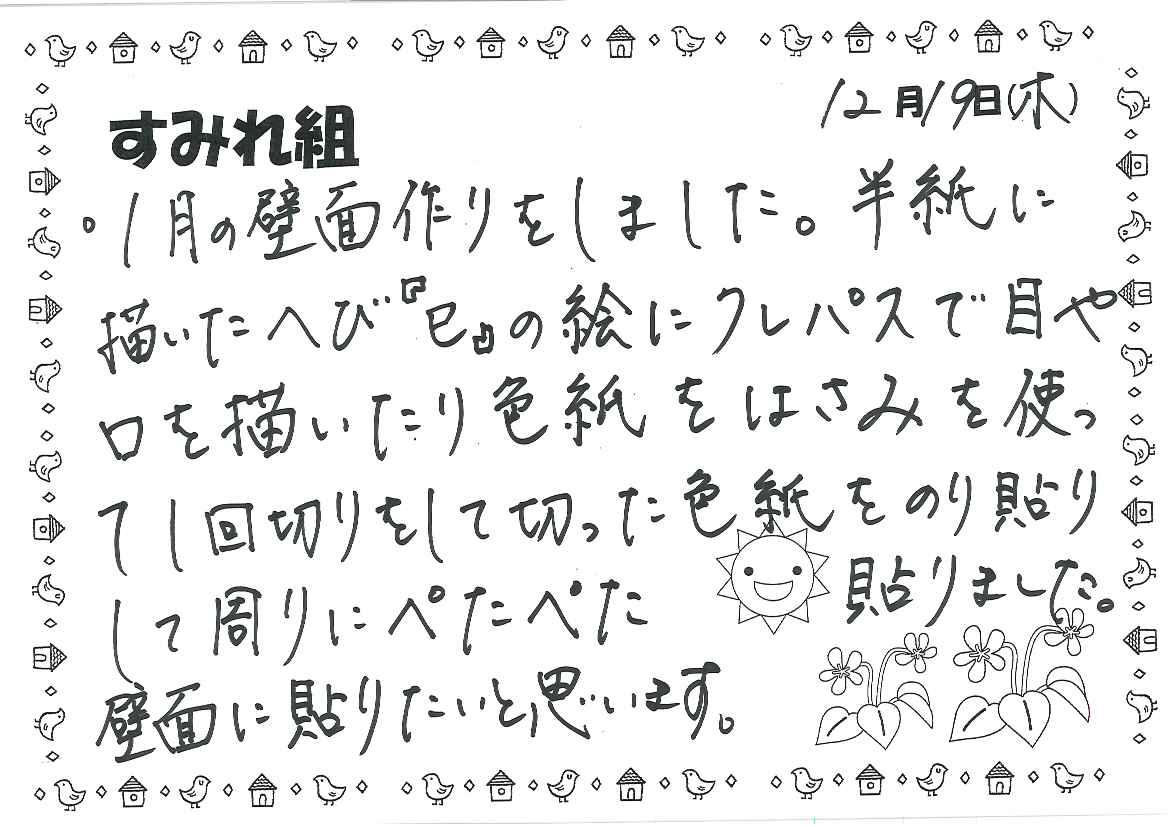 12月19日(木)
すみれ組
。1月の壁面作りをしました。半紙に
描いたへび『巳』の絵にクレパスで目や
口を描いたり色紙をはさみを使っ
て1回切りをして切った色紙をのり貼り
して周りにペたペた貼りました。
壁面に貼りたいと思います。